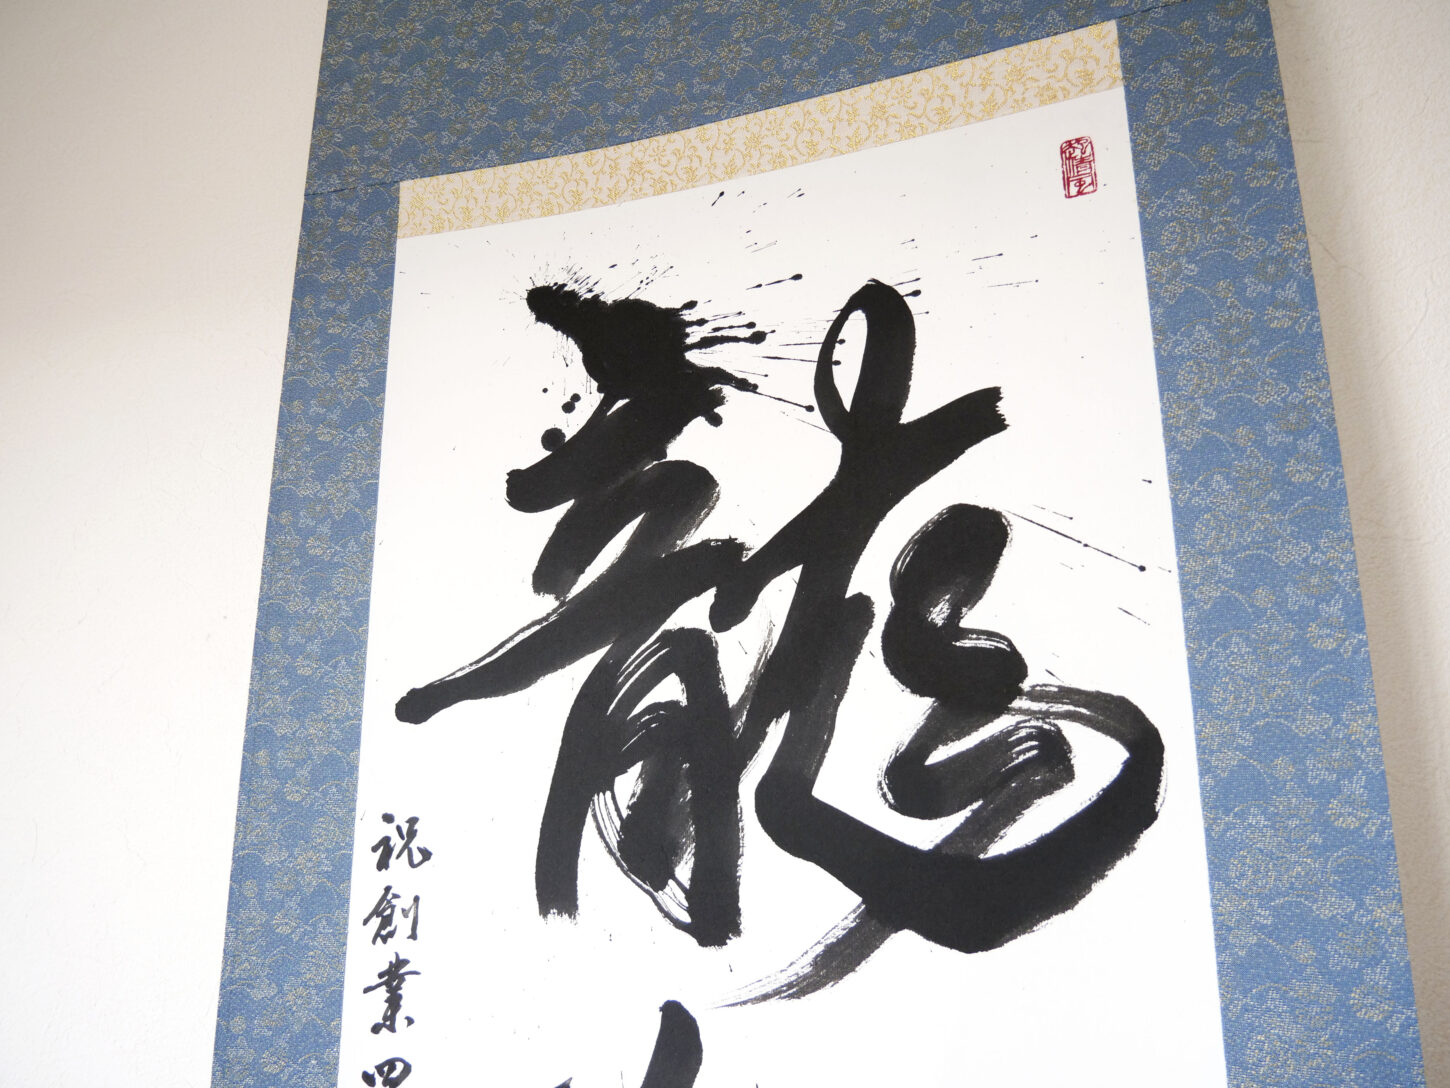 龍
祝創業四